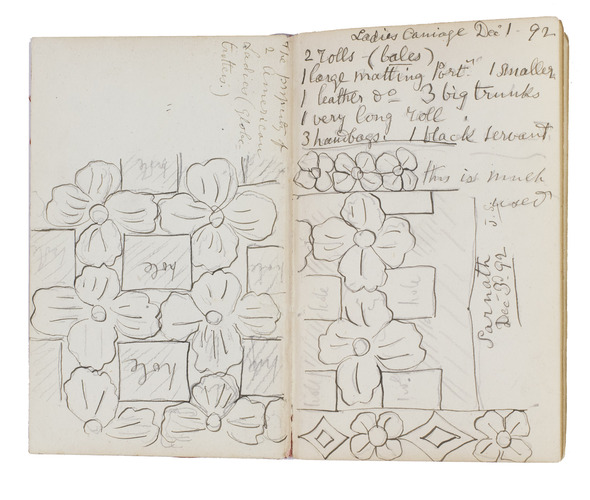 The property of
2 American
Ladies (Globe
trotters.)
hole
hole
hole
hole
hole
Ladies Carriage Dec 1. 92
2 rolls - (bales)
1 large matting Port. 1 smaller
1 leather do 3 big trunks
1 very long roll
3 handbags. 1 black servant
this is much
used
hole
hole
hole
hole
Sarnath
Dec 3. 92